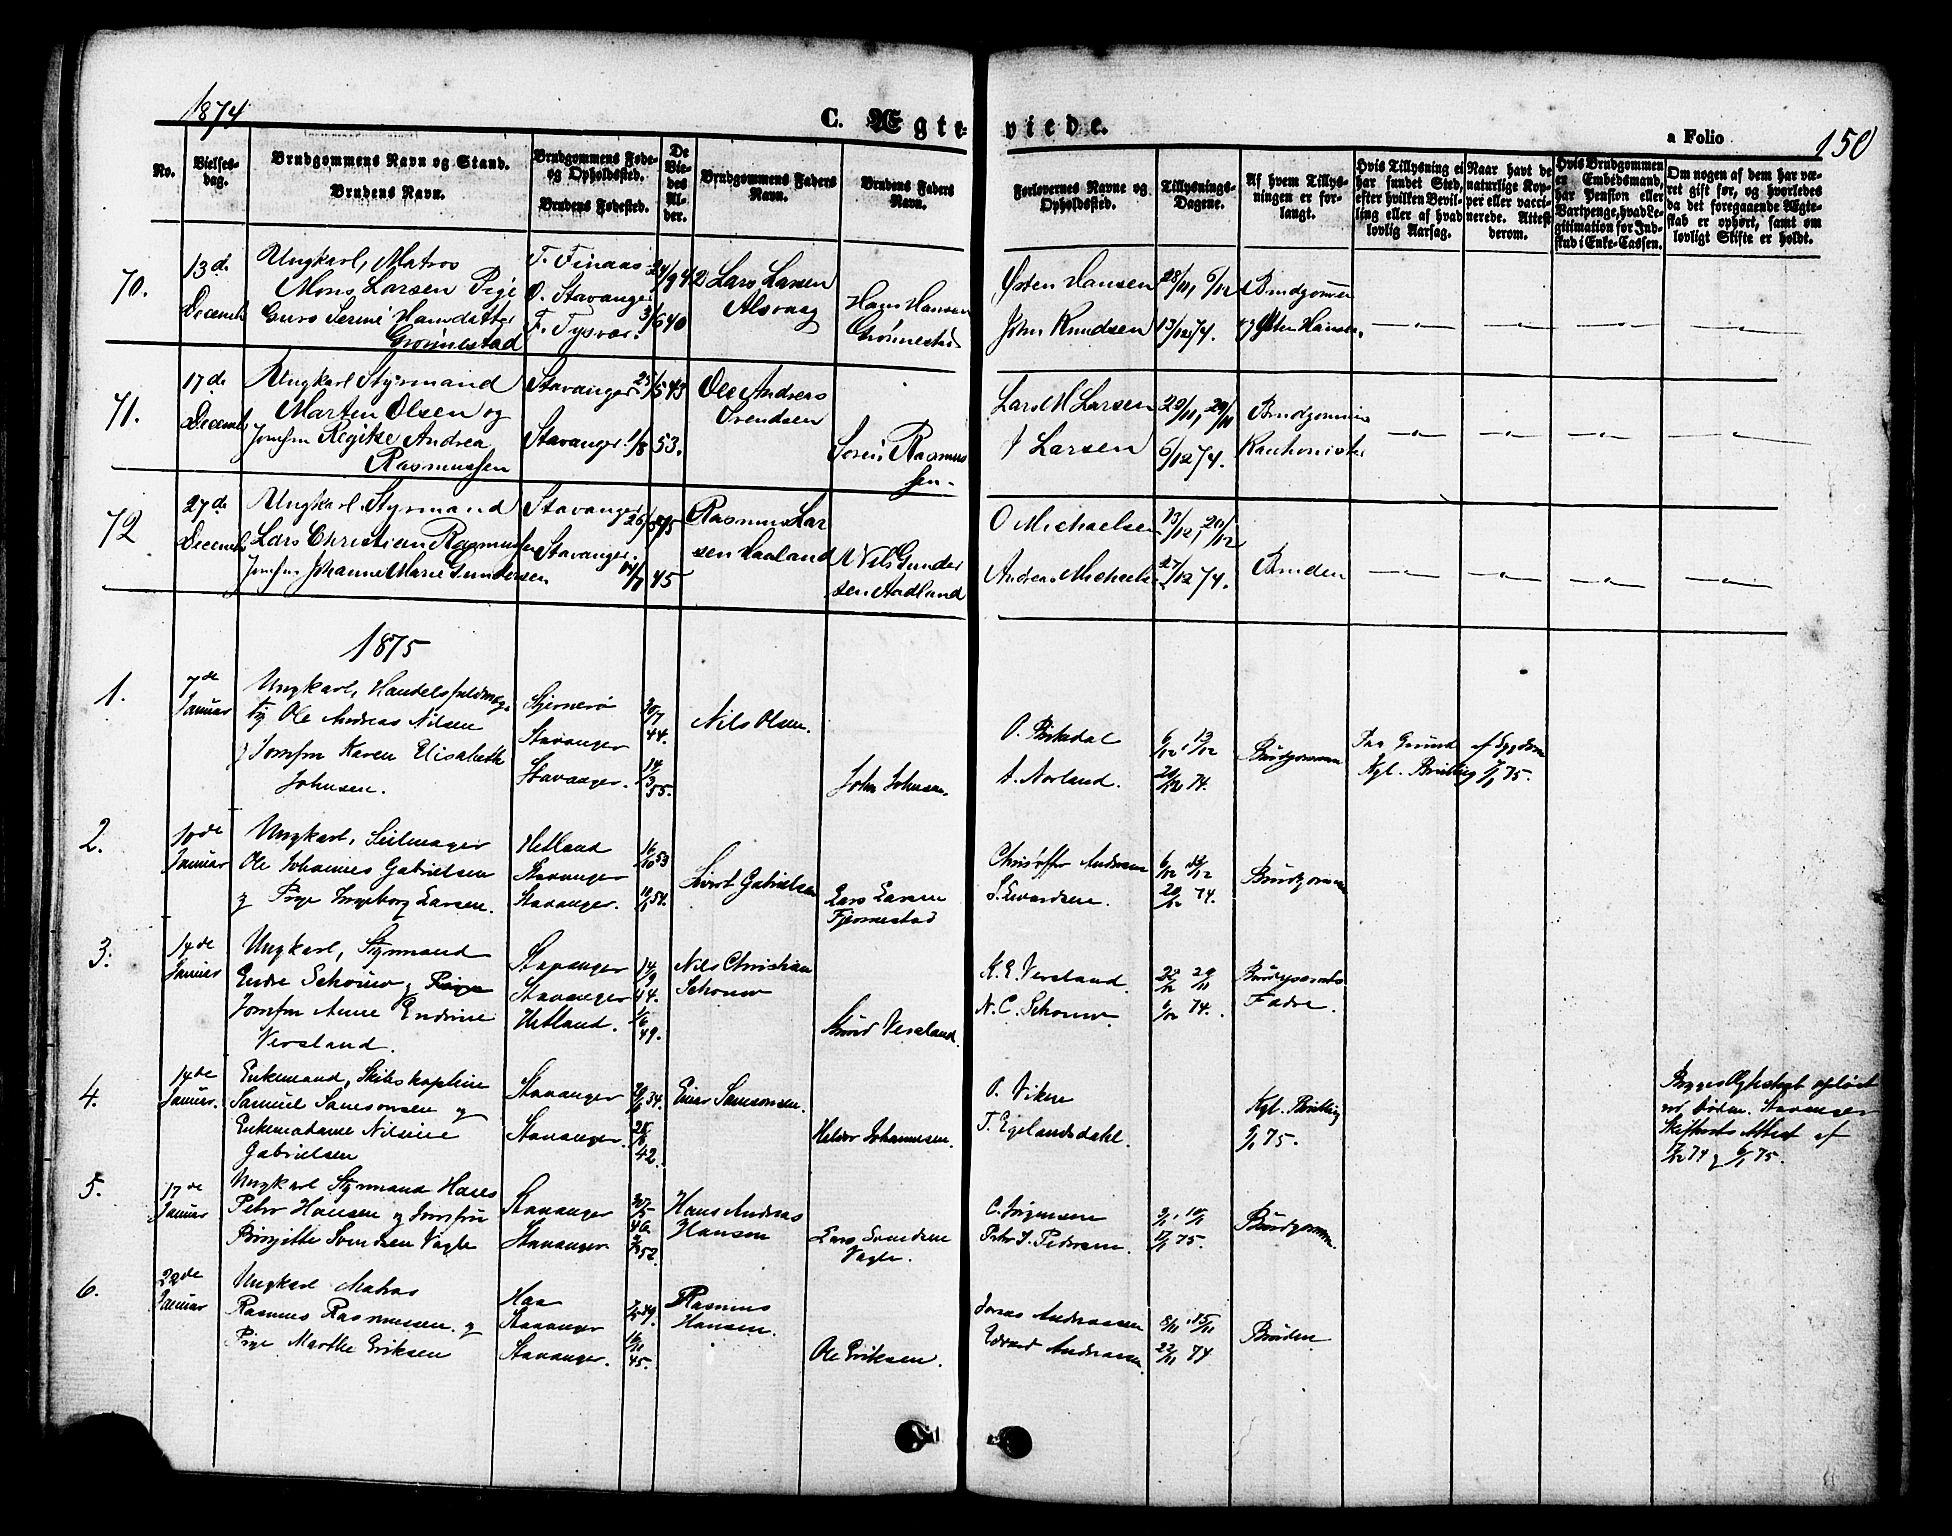 1874
C. Ægteviede.
a Folio
150
No.
Vielses-
dag.
Brudgommens Navn og Stand.
Brudens Navn.
Brudgommens Føde-
og Opholdssted.
Brudens Fødested.
De
Vie-
des
Al-
der.
Brudgommens Faders
Navn.
Brudens Faders
Navn.
Forlovernes Navne og
Opholdssted.
Tillysnings-
Dagene.
Af hvem Tillys-
ningen er for-
langt.
Hvis Tillysning ei
har fundet Sted,
efter hvilken Bevil-
ling eller af hvad
lovlig Aarsag.
Naar havt de
naturlige Kop-
per eller vacci-
nerede. Attest
derom.
Hvis Brudgommen
er Embedsmand,
har Pension eller
Vartpenge, hvad Le-
gitimation for Ind-
skud i Enke-Cassen.
Om nogen af dem har væ-
ret gift før, og hvorledes
da det foregaaende Ægte-
skab er ophørt, samt om
lovligt Skifte er holdt.
70.
13de
Decemb
Ungkarl, Matros
Mons Larsen Pige
Guro Serine Hansdatter
Grønnestad
F. Finaas
O. Stavanger
F. Tysvær.
24/9 42
3/6 40
Lars Larsen
Alsvaag
Hans Hansen
Grønnestad
Østen Hansen
John Knudsen
28/11, 6/12
13/12 74.
Brudgommen
og Østen Hansen
71.
17de
Decemb
Ungkarl Styrmand
Marten Olsen og
Jomfru Regitse Andrea
Rasmussen
Stavanger
Stavanger
25/5 43
1/8 53.
Ole Andreas
Svendsen
Søren Rasmus
sen
Lars M Larsen
I Larsen
22/11, 29/11
6/12 74.
Brudgommen
Kautionister
72
27de
Decemb
Ungkarl Styrmand
Lars Christian Rasmussen
Jomfru Johanne Marie Gundersen
Stavanger
Stavanger.
45
Rasmus Lar
sen Haaland
Nils Gunder
sen Aadland
O Michaelsen
Andreas Michaelsen
13/12, 20/12
27/12 74.
Bruden
1875
1.
7de
Januar
Ungkarl, Handelsfuldmæg-
tig Ole Andreas Nilsen
og Jomfru Karen Elisabeth
Johnsen.
Stjernerø
Stavanger
Stavanger.
30/7
44.
14/3
55.
Nils Olsen.
John Johnsen.
O. Birkedal
A. Aarland.
6/12, 13/12
20/12 74.
Brudgommen
Paa Grund af Sygdom
Kgl. Bevilling 75.
2.
10de
Januar
Ungkarl, Seilmager
Ole Johannes Gabrielsen
og Pige Ingeborg Larsen.
Hetland
Stavanger
Stavanger.
16/10 53
54.
Sivert Gabrielsen
Lars Larsen
Fjermestad
Christoffer Andersen
S. Evardsen.
6/12 13/12
20/12 74.
Brudgommen
3.
14de
Januar
Ungkarl, Styrmand
Endre Schouw og Pige
Jomfru Anne Endrine
Versland.
Stavanger
Stavanger
Hetland.
14/9
44.
1/6
49.
Nils Christian
Schouw
Versland.
K. E. Versland.
N. C. Schouw.
22/11 29/11
6/12 74.
Brudgommens
Fader
4.
14de
Januar.
Enkemand, Skibskaptein
Samuel Samsonsen og
Enkemadame Nilsine
Gabrielsen
Stavanger
Stavanger.
34.
42.
Einar Samsonsen.
Heldor Johannesen.
O. Vikse
T. Egelandsdahl.
Kgl. Bevilling
75.
Begges Ægteskab opløst
ved Døden. Stavanger
Skifterets Attest af
74 og 75.
5.
17de
Januar
Ungkarl Styrmand Hans
Peter Hansen og Jomfru
Birgitte Svendsen Vagle
Stavanger
Stavanger
46.
52.
Hans Andreas
Hansen
Lars Svendsen
Vagle.
C. Jørgensen
Peter S. Pedersen.
3/1, 10/1
17/1 75.
Brudgommen.
6.
22de
Januar
Ungkarl Matros
Rasmus Rasmussen og
Pige Marthe Eriksen
Haa
Stavanger
Stavanger.
49.
16/11
45.
Rasmus
Hansen.
Ole Eriksen.
Jonas Andreassen
Edvard Andreassen
8/11, 15/11
22/11 74
Bruden